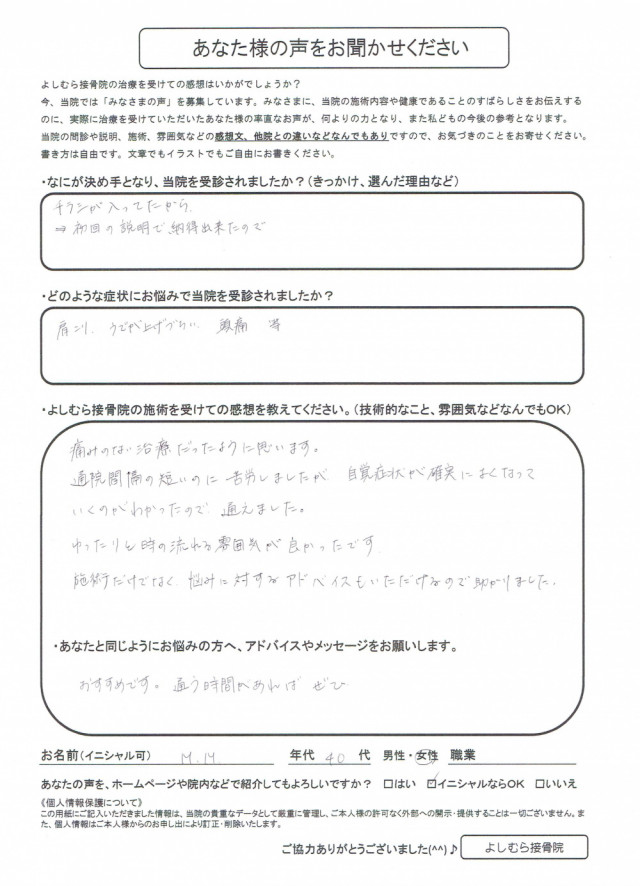 あなた様の声をお聞かせください
よしむら接骨院の治療を受けての感想はいかがでしょうか?
今、当院では「みなさまの声」を募集しています。みなさまに、当院の施術内容や健康であることのすばらしさをお伝えする
のに、実際に治療を受けていただいたあなた様の率直なお声が、何よりの力となり、また私どもの今後の参考となります。
当院の問診や説明、施術、雰囲気などの感想文、他院との違いなどなんでもありですので、お気づきのことをお寄せください。
書き方は自由です。文章でもイラストでもご自由にお書きください。
・なにが決め手となり、当院を受診されましたか?(きっかけ、選んだ理由など)
チラシが入ってたから。
⇒初回の説明で納得出来たので
・どのような症状にお悩みで当院を受診されましたか?
肩こり、うでが上げづらい、頭痛 等
・よしむら接骨院の施術を受けての感想を教えてください。(技術的なこと、雰囲気などなんでもOK)
痛みのない治療だったように思います。
通院間隔の短いのに苦労しましたが、自覚症状が確実によくなって
いくのがわかったので通えました。
ゆったりと時の流れる雰囲気が良かったです。
施術だけでなく、悩みに対するアドバイスもいただけるので助かりました。
・あなたと同じようにお悩みの方へ、アドバイスやメッセージをお願いします。
おすすめです。通う時間があれば ぜひ
お名前(イニシャル可) M.M. 年代 40 代 男性・女性 職業
あなたの声を、ホームページや院内などで紹介してもよろしいですか? □はい ☑イニシャルならOK □いいえ
《個人情報保護について》
この用紙にご記入いただきました情報は、当院の貴重なデータとして厳重に管理し、ご本人様の許可なく外部への開示・提供することは一切ございません。ま
た、個人情報はご本人様からのお申し出により訂正・削除いたします。
ご協力ありがとうございました(^^)♪ よしむら接骨院